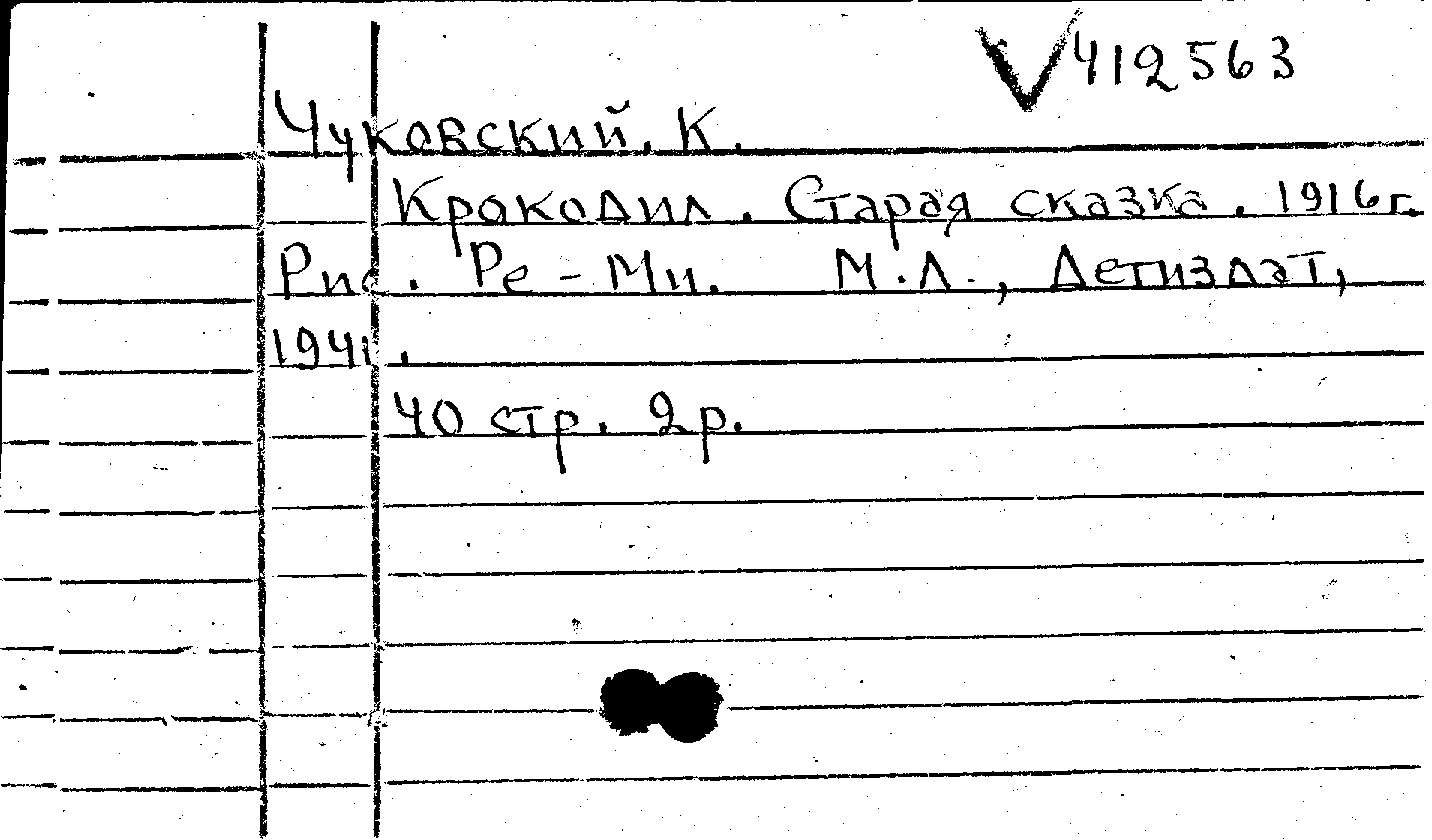 V412563
Чуковский. К.
Крокодил. Старая сказка. 1916г.
Рис. Ре-Ми. М.Л., Детиздат,
1941.
40 стр. 2р.